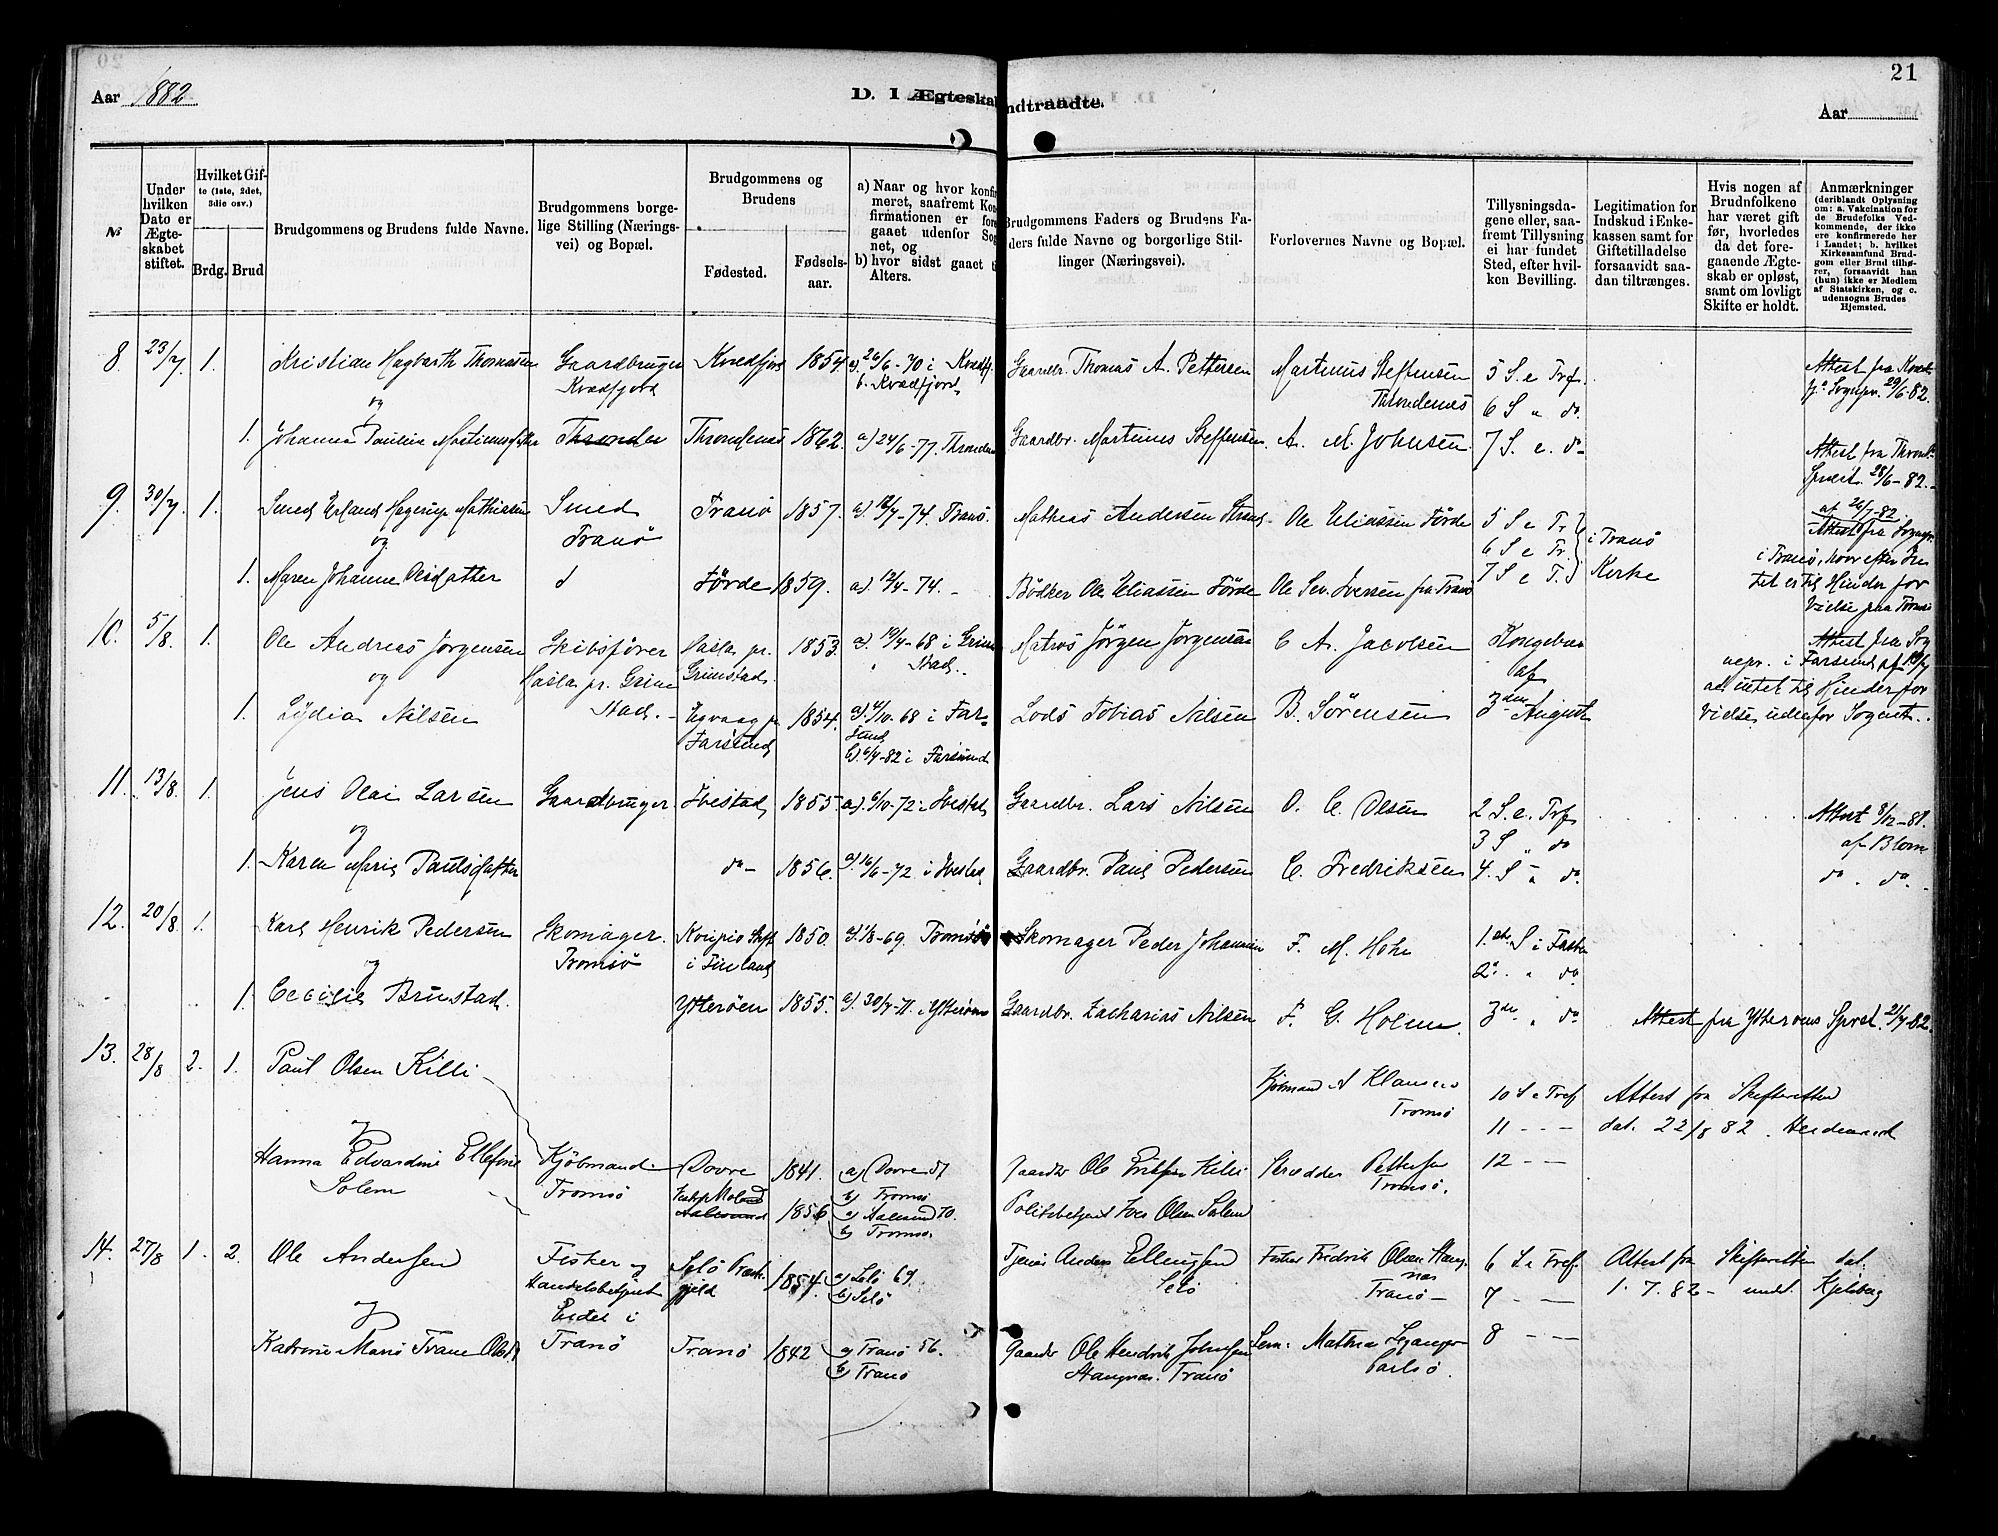 20
21
Aar 1882
D. I Ægteskab indtraadte.
Aar
№
Under hvilken Dato er Ægteskabet stiftet.
Hvilket Gifte (1ste, 2det, 3die osv.)
Brdg.
Brud
Brudgommens og Brudens fulde Navne.
Brudgommens borgelige Stilling (Næringsvei) og Bopæl.
Brudgommens og Brudens
Fødested.
Fødselsaar.
a) Naar og hvor konfirmeret, saafremt Konfirmationen er foregaaet udenfor Sognet, og
b) hvor sidst gaaet til Alters.
Brudgommens Faders og Brudens Faders fulde Navne og borgerlige Stillinger (Næringsvei).
Forlovernes Navne og Bopæl.
Tillysningsdagene eller, saafremt Tillysning ei har fundet Sted, efter hvilken Bevilling.
Legitimation for Indskud i Enkekassen samt for Giftetilladelse forsaavidt saadan tiltrænges.
Hvis nogen af Brudnfolkene har været gift før, hvorledes da det foregaaende Ægteskab er opløst, samt om lovligt Skifte er holdt.
Anmærkninger (deriblandt Oplysning om: a. Vakcination for de Brudefolks Vedkommende, der ikke ere konfirmerede her i Landet; b. hvilket Kirkesamfund Brudgom eller Brud tilhører, forsaavidt han (hun) ikke er Medlem af Statskirken, og c. udensogns Brudes Hjemsted.
8 23/7 1. Kristian Hagbarth Thomassen Gaardbruger Kvædfjord 1854 a) 26/6-70 i Kvædfj. Gaardbr. Thomas A. Pettersen Martinus Steffensen 5 S. e Trf. Attest fra Kvæd-
og Kvædfjord b. Kvædfjord Throndenæs 6 S " do fj. Sognepr. 29/6-82.
1. Johanna Pauline Martinusdatter Thronder Throndenæs 1862. a) 24/6-77. Gaardbr. Martinus Steffensen A. M. Johnsen 7 S. e. do Attest fra
28/6-82.
9. 30/7 1. Smed Erland Hagerup Mathisen Smed Tranö 1857. a). 12/7-74. Tranö. Mathias Andersen Ole Eliassen Förde 5 S e Tr. i Tranö af 26/7 82.
og Tranö 6 S e Tr. Kirke Attest fra Sognepr.
1. Maren Johanne Olsdatter d Förde 1859. a). 12/4-74. Bödker Ole Eliassen Förde Ole Sev. Iversen fra Tranö 7 S e T. i Tranö, hvorefter In-
tet er til Hinder for
Vielse paa Tromsö
10. 5/8 1. Ole Andreas Jörgensen Skibsförer Hasla pr. 1853. a). 19/4-68 i Grim- Matros Jörgen Jörgensen C A. Jacobsen Kongebrev Attest fra Sog-
og Hasla pr. Grim- Grimstad. stad. af nepr. i Farsund af
1. Lydia Nilsen stad. Farsund 1854. a) 4/10-68 i Far- Lods Tobias Nilsen B. Sörensen 3die August at intet til Hinder for
sund b). 6/7-82 i Farsund Vielse udenfor Sognet.
11. 13/8. 1. Jens Olai Larsen Gaardbruger Ibestad 1855. a) 6/10-72 i Ibestad Gaardbr. Lars Nilsen O. C. Olsen 2 S. e. Trf. Attest 8/12-81.
og 3 S " do af Blom
1. Karen Marie Paulsdatter do 1856. a) 16/6-72 i Ibestad Gaardbr. Paul Pedersen C. Fredriksen 4. S " do. do. do.
12. 20/8. 1. Karl Henrik Pedersen Skomager. Koupio Stift 1850. a). 1/8-69. Tromsö Skomager Peder Johannesen F. M. Hohr 1.ste S i Fasten
og Tromsö i Finland 2. " do
1. Cecilie Brustad. Ytterøen 1855. a). 30/7-71. i Ytterøen Gaardbr. Zacharias Nilsen F. G. Holm. 3die " do Attest fra Ytterøens Sprest. 21/7 82.
13. 28/8 2. 1. Paul Olsen Killi Kjöbmand A Klausen 10 S e Tref Attest fra Skifteretten
og Tromsö 11 - - - dat. 22/8 82.
Hanna Edvardine Ellefine Kjöbmand Dovre 1841. a) Dovre 57 Gaardbr Ole Killi Skrædder Pettersen 12 - -
Solem Tromsö b) Tromsö Tromsö.
Aalesund 1856 a) Aalesund 70. Politibetjent Iver Olsen Solem
b) Tromsö.
14. 27/8 1. 2. Ole Andersen Fisker og Selö Præste- 1854. a) Selö 69. Tjener Anders Ellingsen Fisker Fredrik Olsen Stang- 6 S e Tref. Attest fra Skifteretten dat.
og Handelsbetjent gjeld b) Selö Selö næs Tranö 7 - - 1. 7. 82 undt. Kjelsberg
i
Katrine Marie Trane Olsd. Tranö Tranö 1842 a) Tranö 56. Gaardbr Ole Hendrik Johnsen Mathias Leganger 8 - -
b) Tranö Stangnæs. Tranö Carlsö.